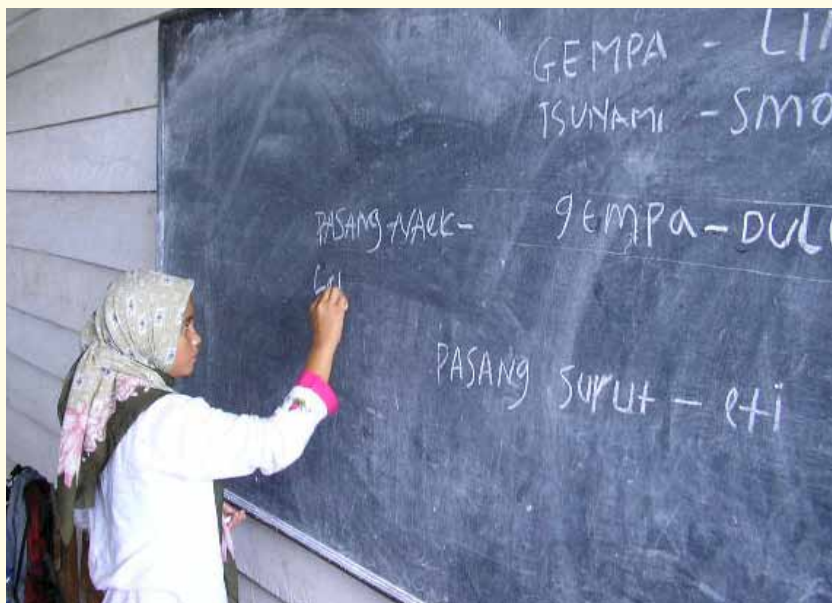 GEMPA - LIN
TSUNAMI - SMO
PASANG-NAEK- gEMPa - DULU
PASANg Surut - eti